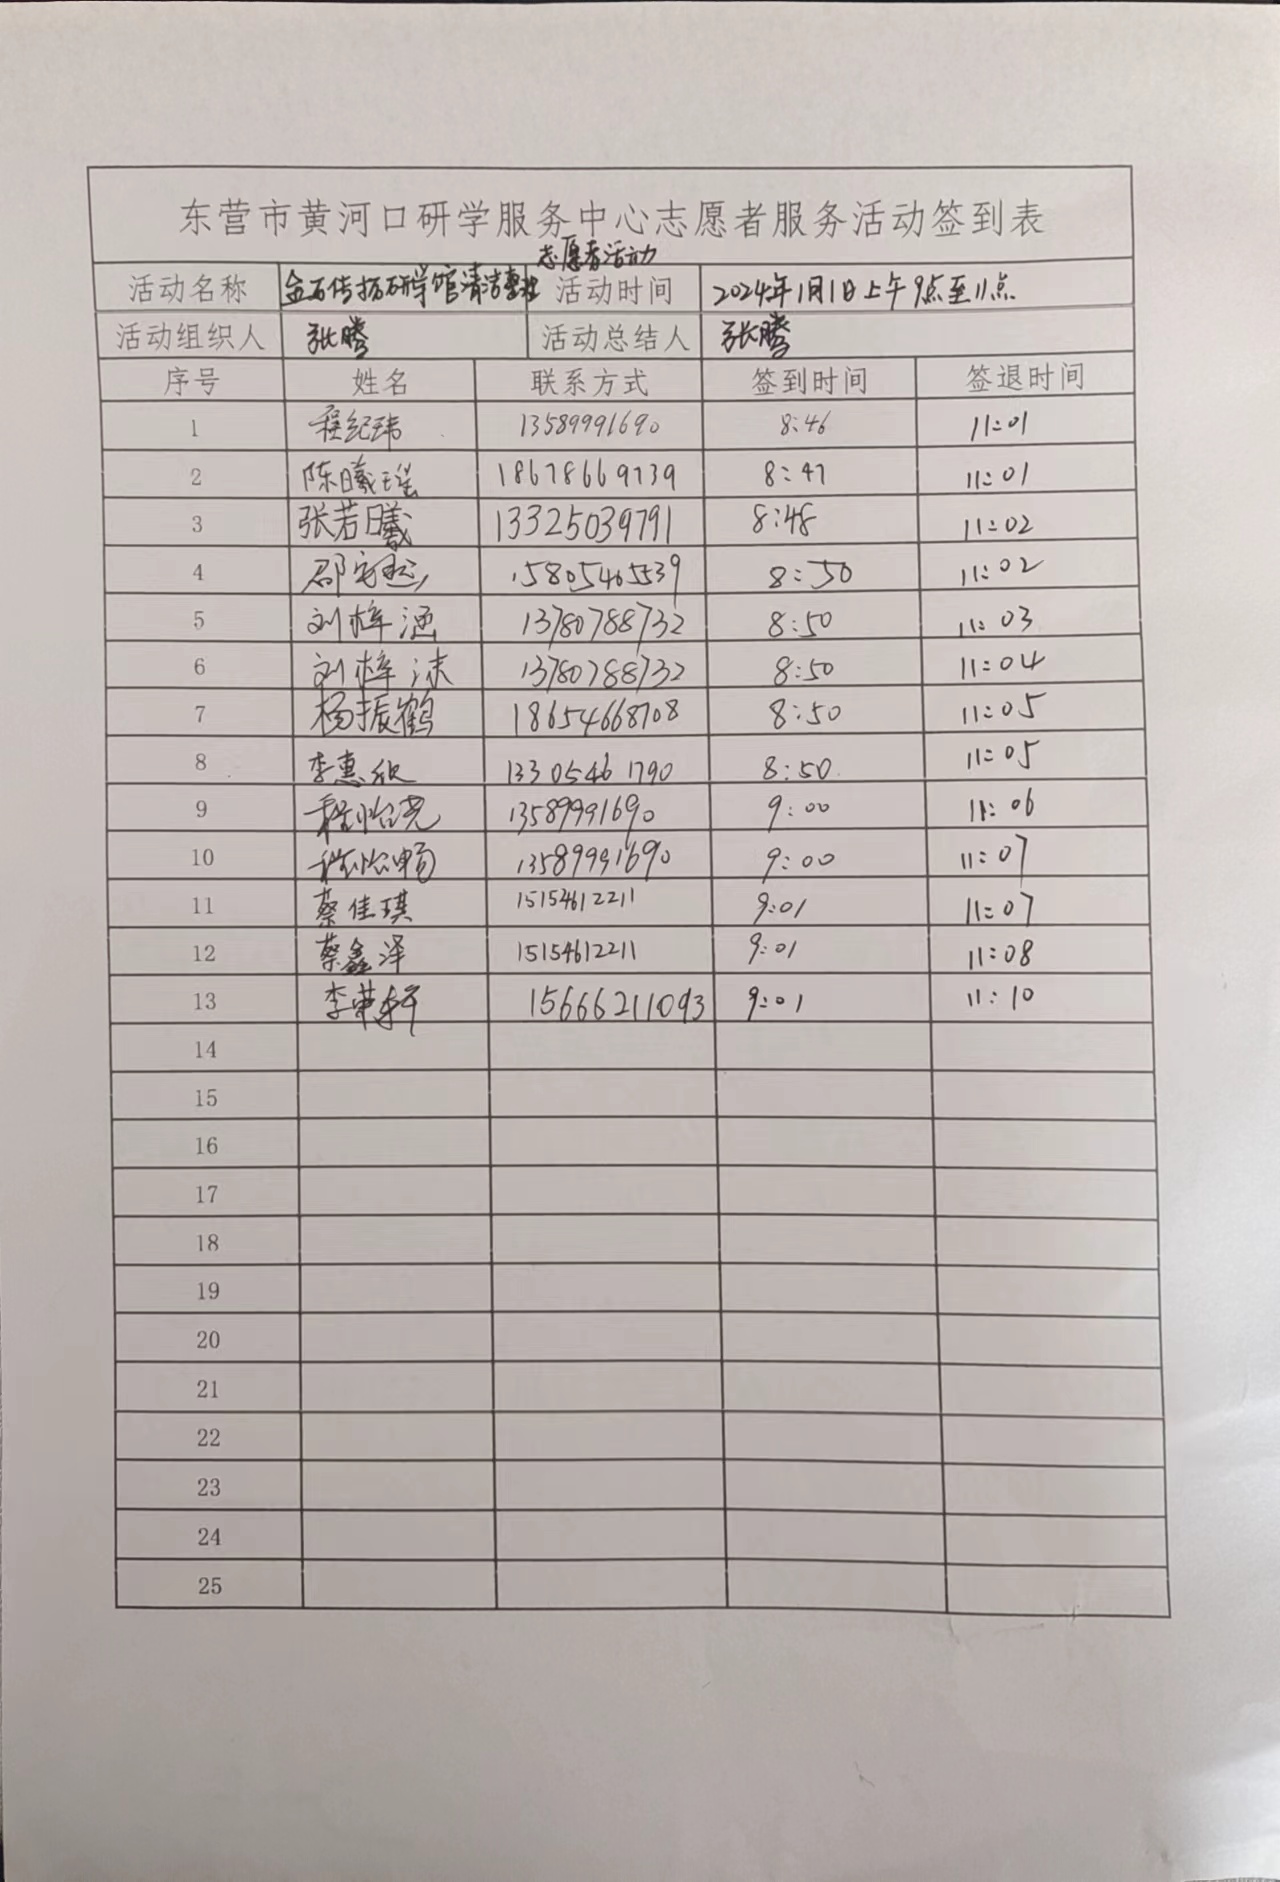 东营市黄河口研学服务中心志愿者服务活动签到表
志愿者活动
活动名称 金石传拓研学馆清洁 活动时间 2024年1月1日上午9点至11点
活动组织人 张腾 活动总结人 张腾
序号 姓名 联系方式 签到时间 签退时间
1 程纪玮 13589991690 8:46 11:01
2 陈曦瑶 18678669739 8:47 11:01
3 张若曦 13325039791 8:48 11:02
4 15805465539 8:50 11:02
5 刘梓涵 13780788732 8:50 11:03
6 刘梓沫 13780788732 8:50 11:04
7 杨振鹤 18654668708 8:50 11:05
8 李惠欣 13305461790 8:50 11:05
9 程怡尧 13589991690 9:00 11:06
10 程怡畅 13589991690 9:00 11:07
11 蔡佳琪 15154612211 9:01 11:07
12 蔡鑫泽 15154612211 9:01 11:08
13 李荣轩 15666211093 9:01 11:10
14
15
16
17
18
19
20
21
22
23
24
25